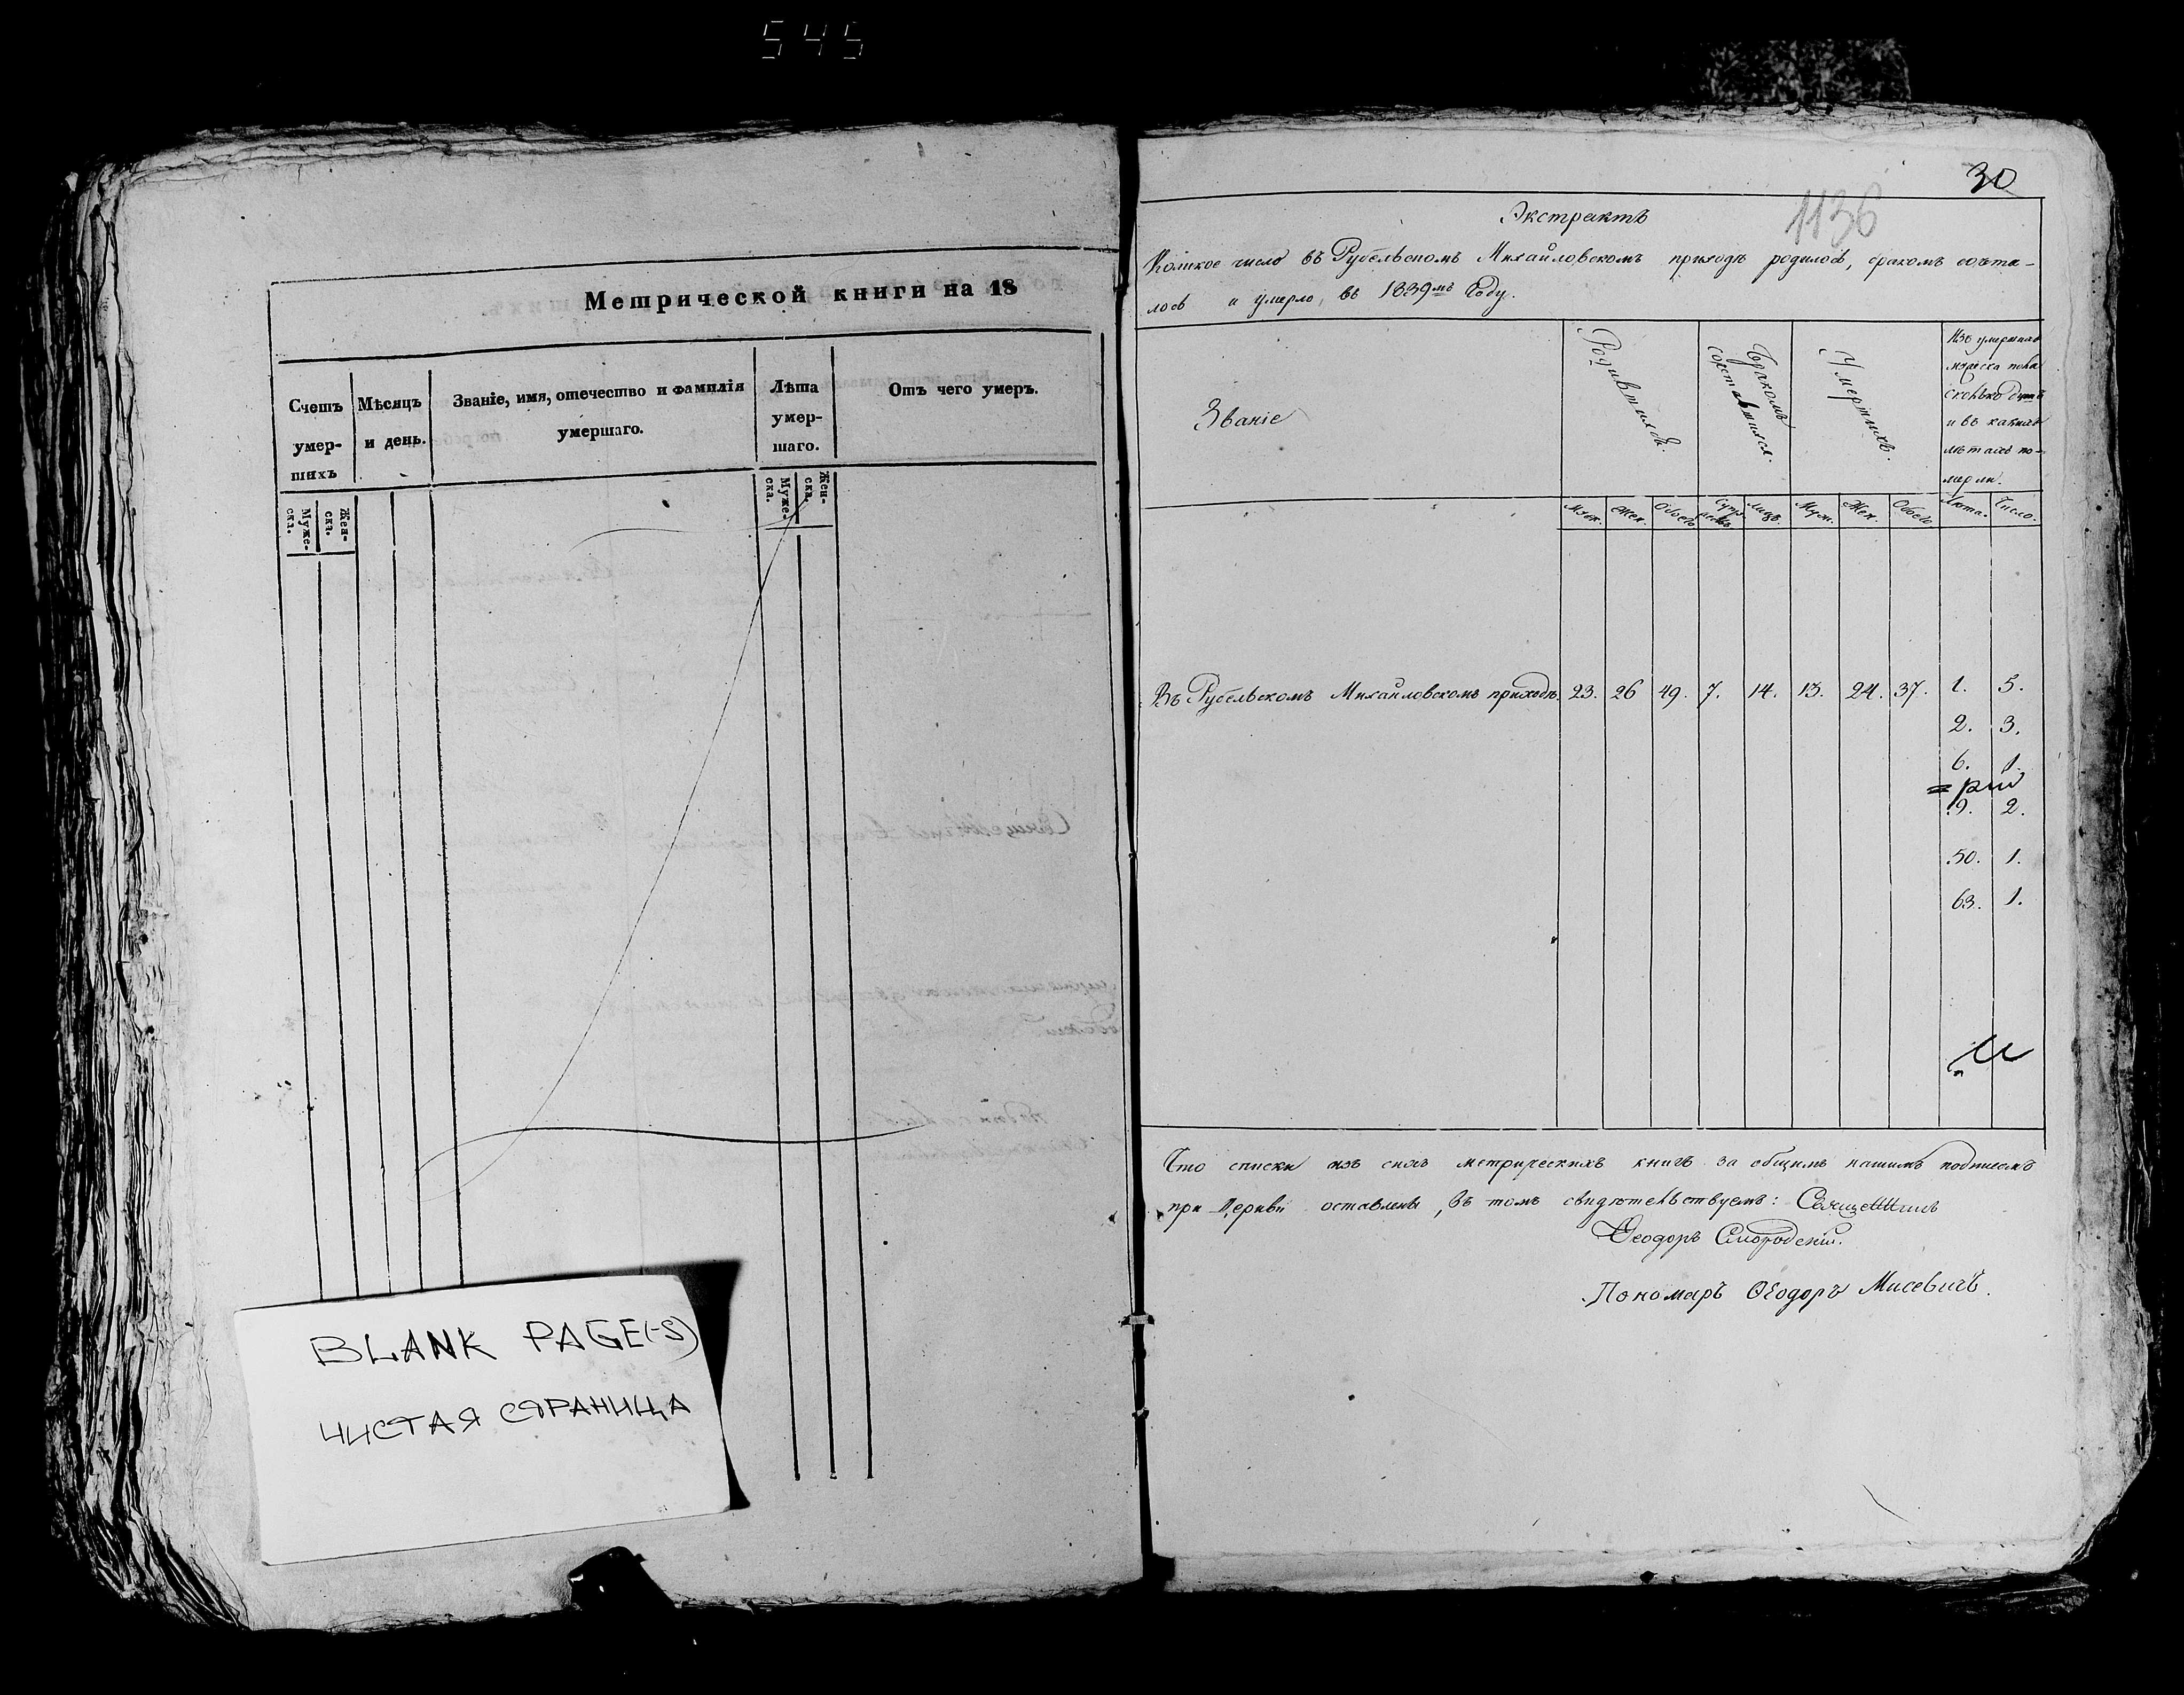 545
Метрической книги на 18
Счетъ умер-шихъ
Мѣсяцъ и день.
Званіе, имя, отечество и фамилія умершаго.
Лѣта умер-шаго.
Отъ чего умеръ.
Муже-ска.
Жен-ска.
Муже-ска.
Жен-ска.
BLANK PAGE(-S)
ЧИСТАЯ СТРАНИЦА
30
1136
Экстрактъ
Коликое число въ Рубельскомъ Михайловскомъ приходѣ родилось, бракомъ сочета-
лось и умерло, въ 1839мъ Году.
Званіе
Родившихся.
Бракомъ сочетавшихся.
Умершихъ.
Изъ умершихъ
мужеска пола
сколько душъ
и въ какихъ
лѣтахъ по-
мерли.
Муж.
Жен.
Обоего
Лицъ.
Муж.
Жен.
Обоего
Лѣта.
Число.
Въ Рубельскомъ Михайловскомъ приходѣ. 23. 26 49. 7. 14. 13. 24. 37. 1. 5.
2. 3.
6. 1.
9. 2.
50. 1.
63. 1.
Что списки изъ сихъ метрическихъ книгъ за общимъ нашимъ подписомъ
при Церкви оставлены, въ томъ свидѣтельствуемъ: Священникъ
Ѳеодоръ Смородскій.
Пономаръ Ѳеодоръ Мисевичъ.